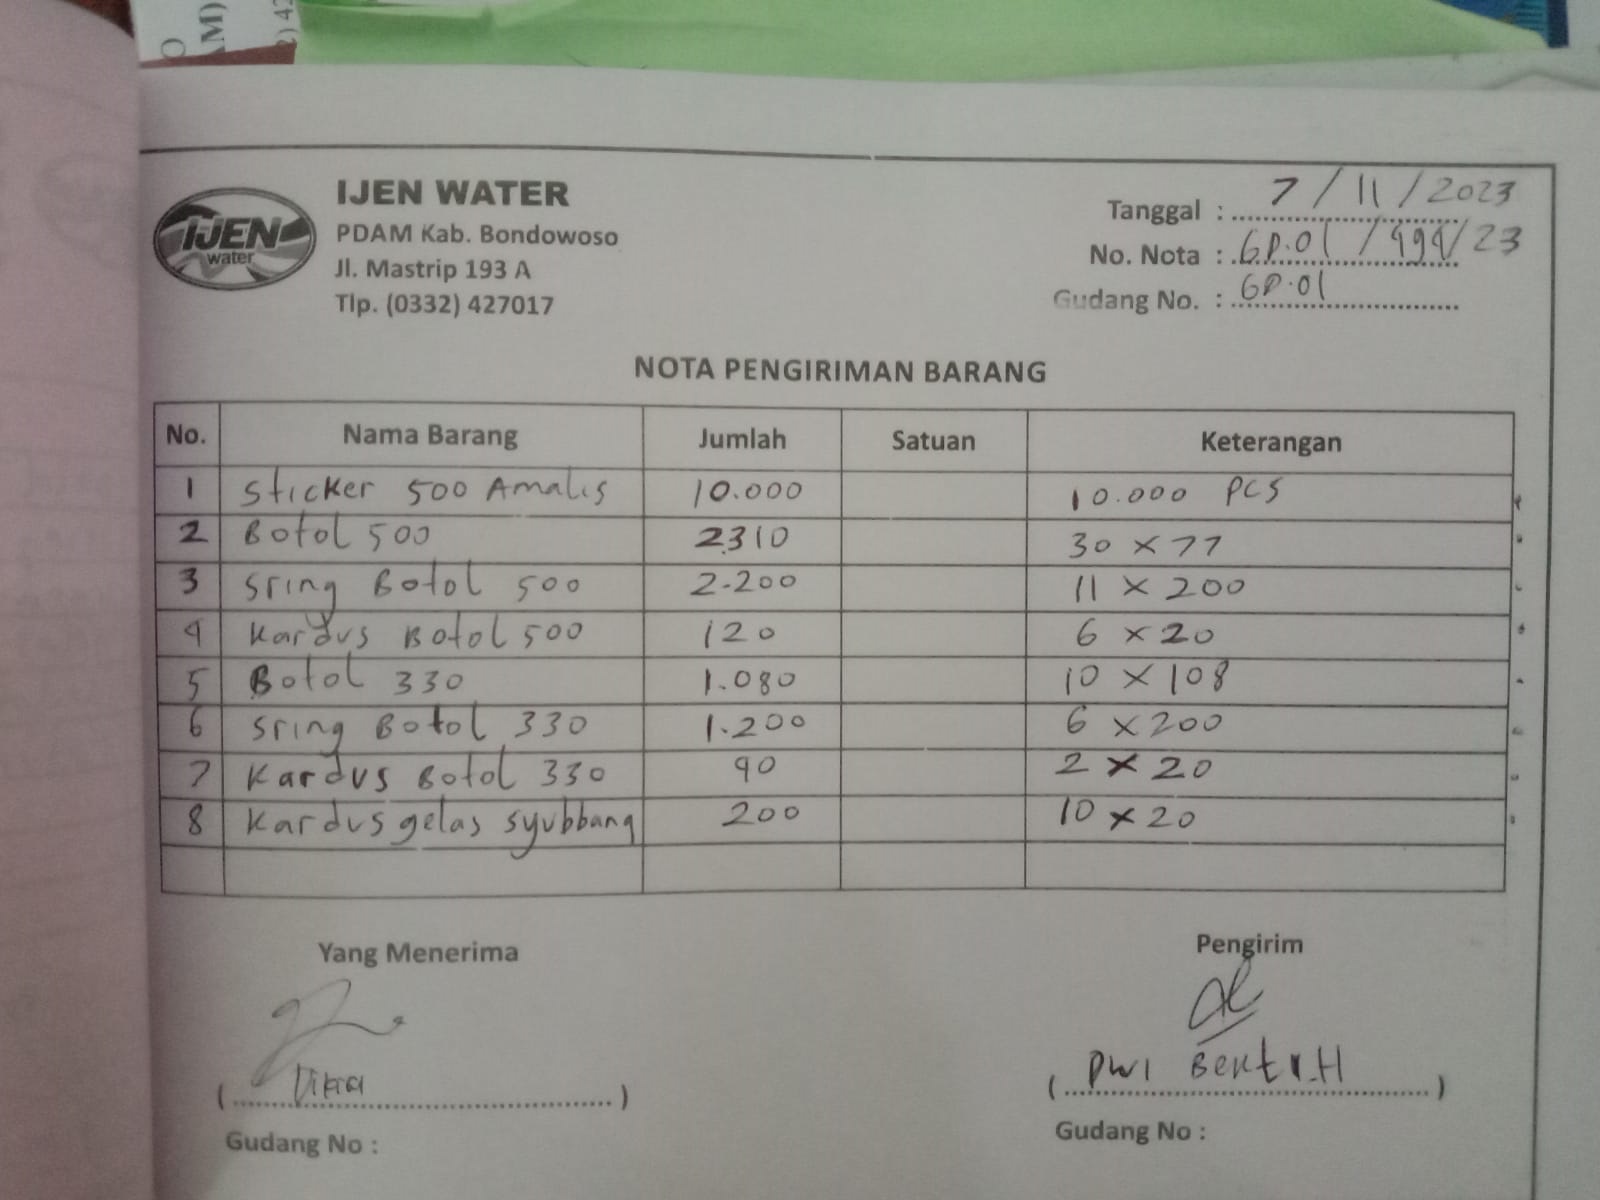 IJEN
water
IJEN WATER
PDAM Kab. Bondowoso
Jl. Mastrip 193 A
Tlp. (0332) 427017
Tanggal : 7 / 11 / 2023
No. Nota : GP.01 / 494 / 23
Gudang No. : GP.01
NOTA PENGIRIMAN BARANG
No. Nama Barang Jumlah Satuan Keterangan
1 Sticker 500 Amalis 10.000 10.000 PCS
2 Botol 500 2310 30 x 77
3 Sring Botol 500 2.200 11 x 200
4 Kardus Botol 500 120 6 x 20
5 Botol 330 1.080 10 x 108
6 Sring Botol 330 1.200 6 x 200
7 Kardus Botol 330 40 2 x 20
8 Kardus gelas Syubbang 200 10 x 20
Yang Menerima Pengirim
( ) ( Dwi Bekti.H )
Gudang No : Gudang No :